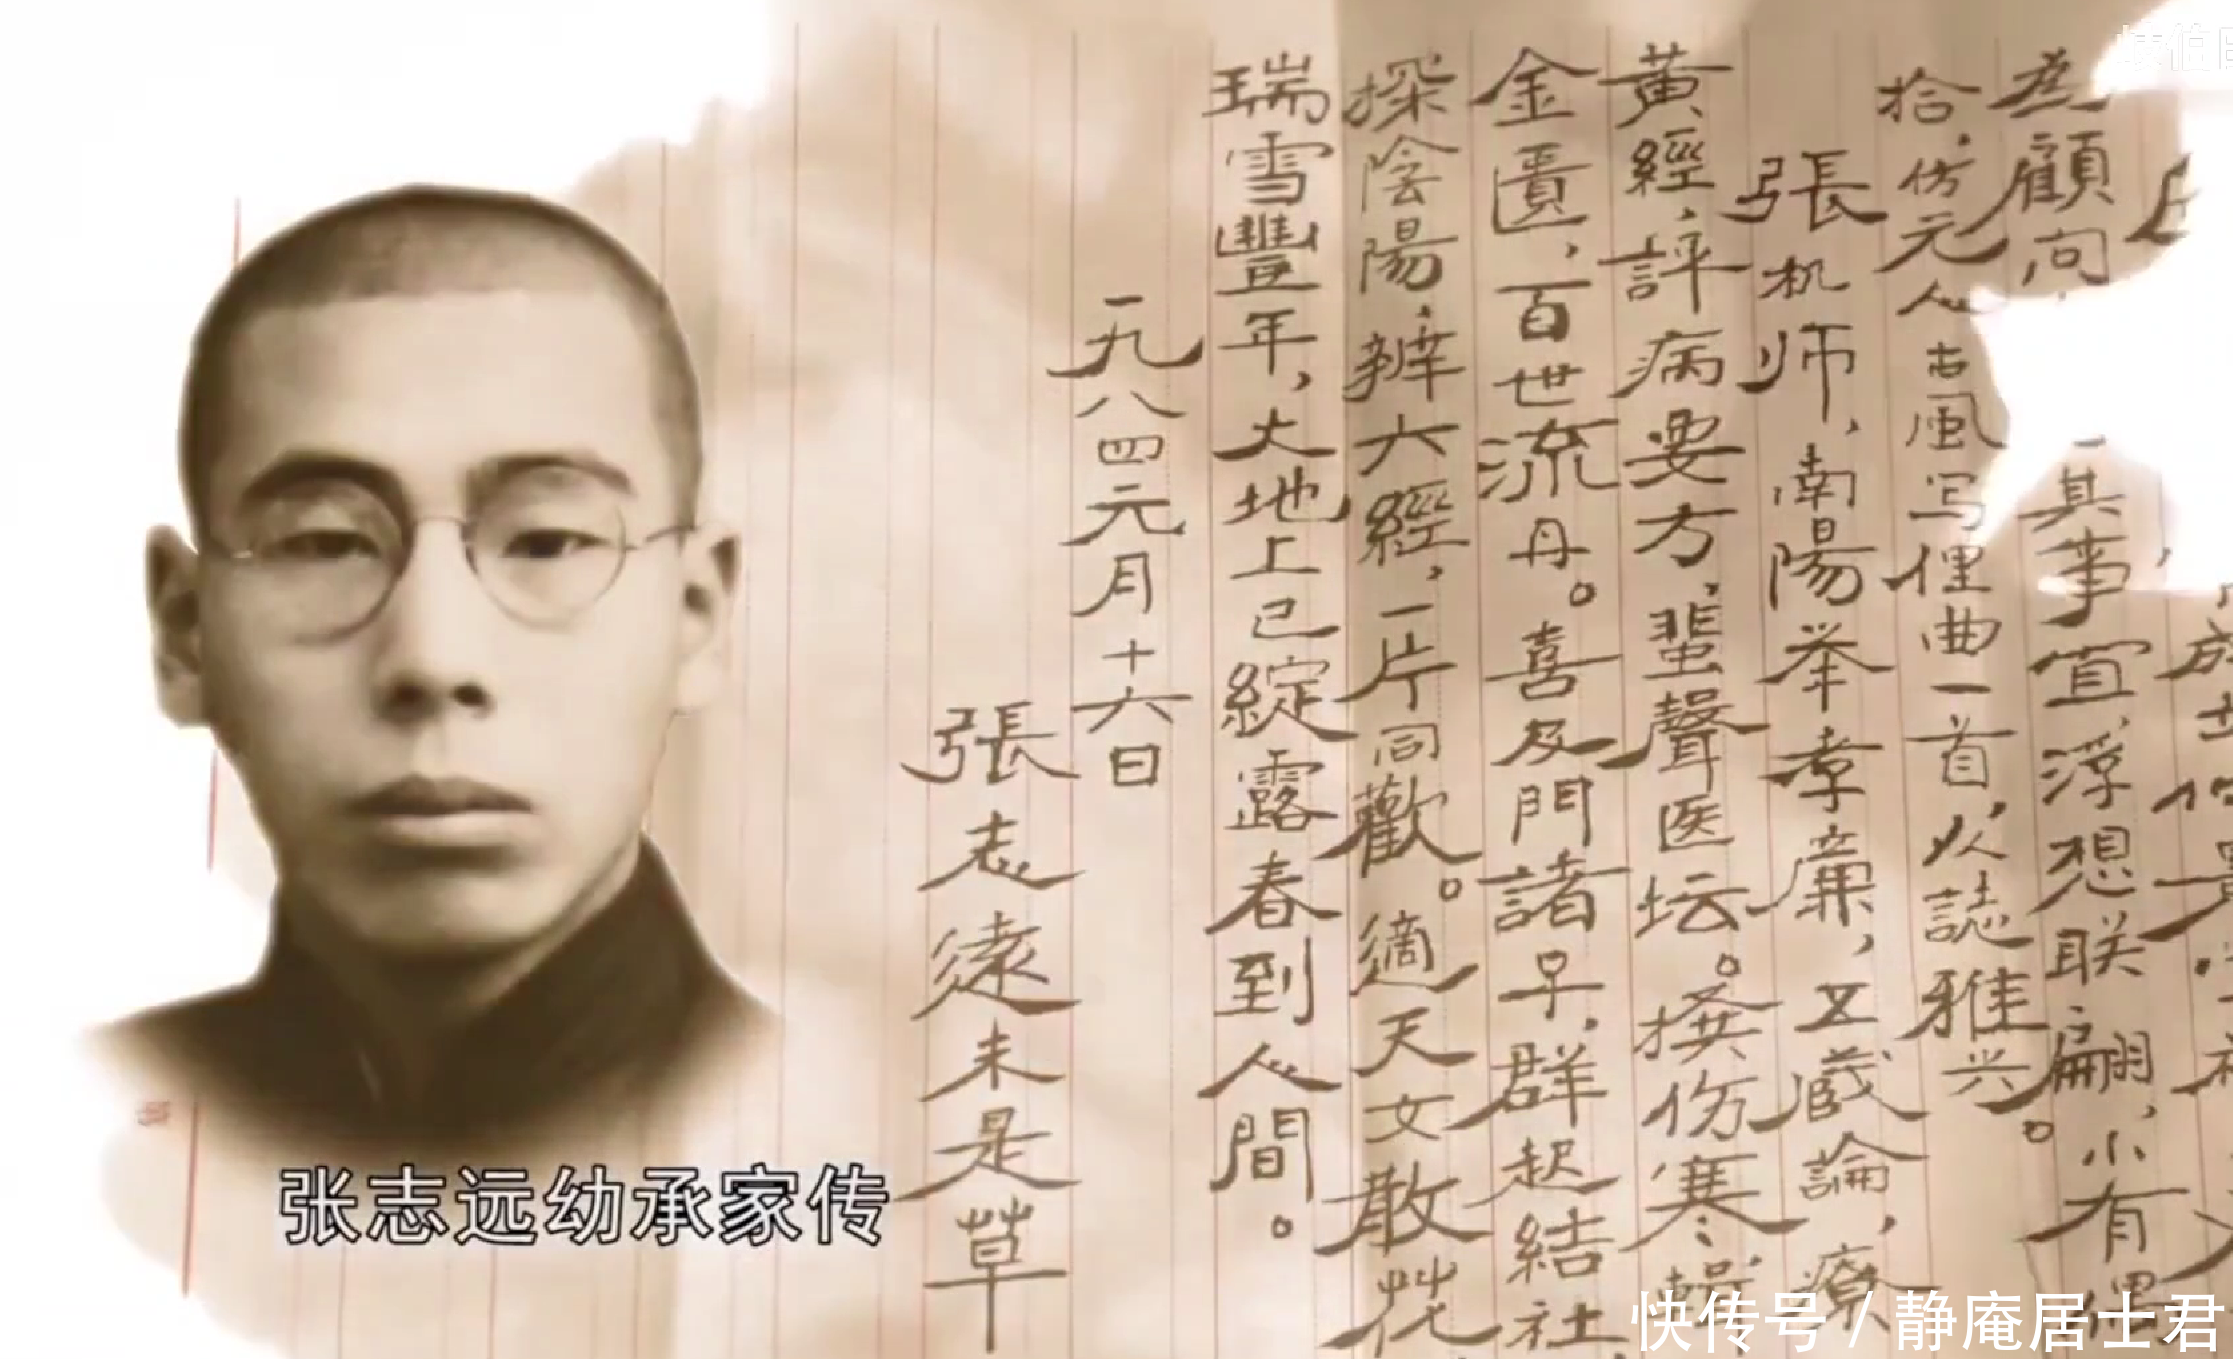 为顧问
其事宜,浮想联翩,小有偶
拾,仿元人古風写俚曲一首,以誌雅兴。
張机师,南陽举孝廉,五藏論,療
黄經,評病要方,蜚聲医坛。撰伤寒、
金匱,百世流丹。喜及門諸子,群起結社,
探陰陽,辨六經,一片同歡。適天女散花
瑞雪豐年,大地上已綻露春到人間。
一九八四元月十六日
張志遠未是草
张志远幼承家传
快传号 / 静庵居士君